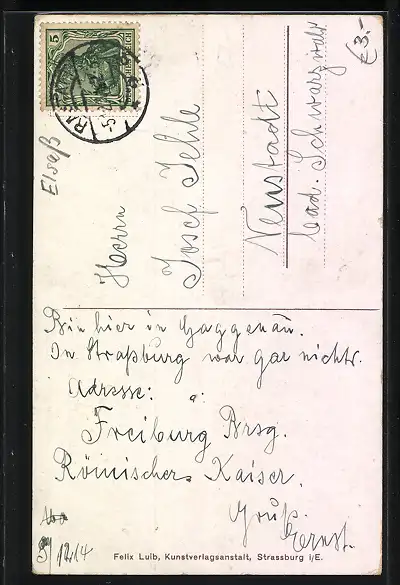 5
€3.-
Elsaß
Herrn
Josef Jehle
Neustadt
bad. Schwarzwald
Bin hier in Gaggenau.
In Straßburg war gar nichts.
Adresse:
Freiburg Brsg.
Römischer Kaiser.
Gruß
Ernst.
5/12 14
Felix Luib, Kunstverlagsanstalt, Strassburg i/E.